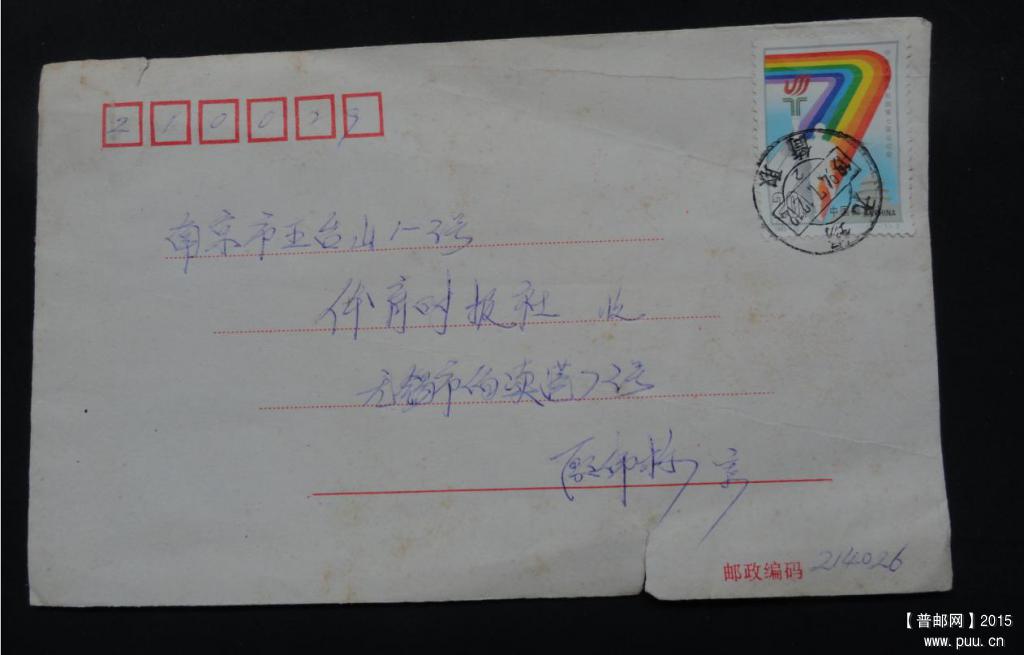 210029
南京市五台山1-2号
体育时报社 收
无锡市伯渎港72号
寄
邮政编码 214026
中国邮政 CHINA
【普邮网】2015
www.puu.cn